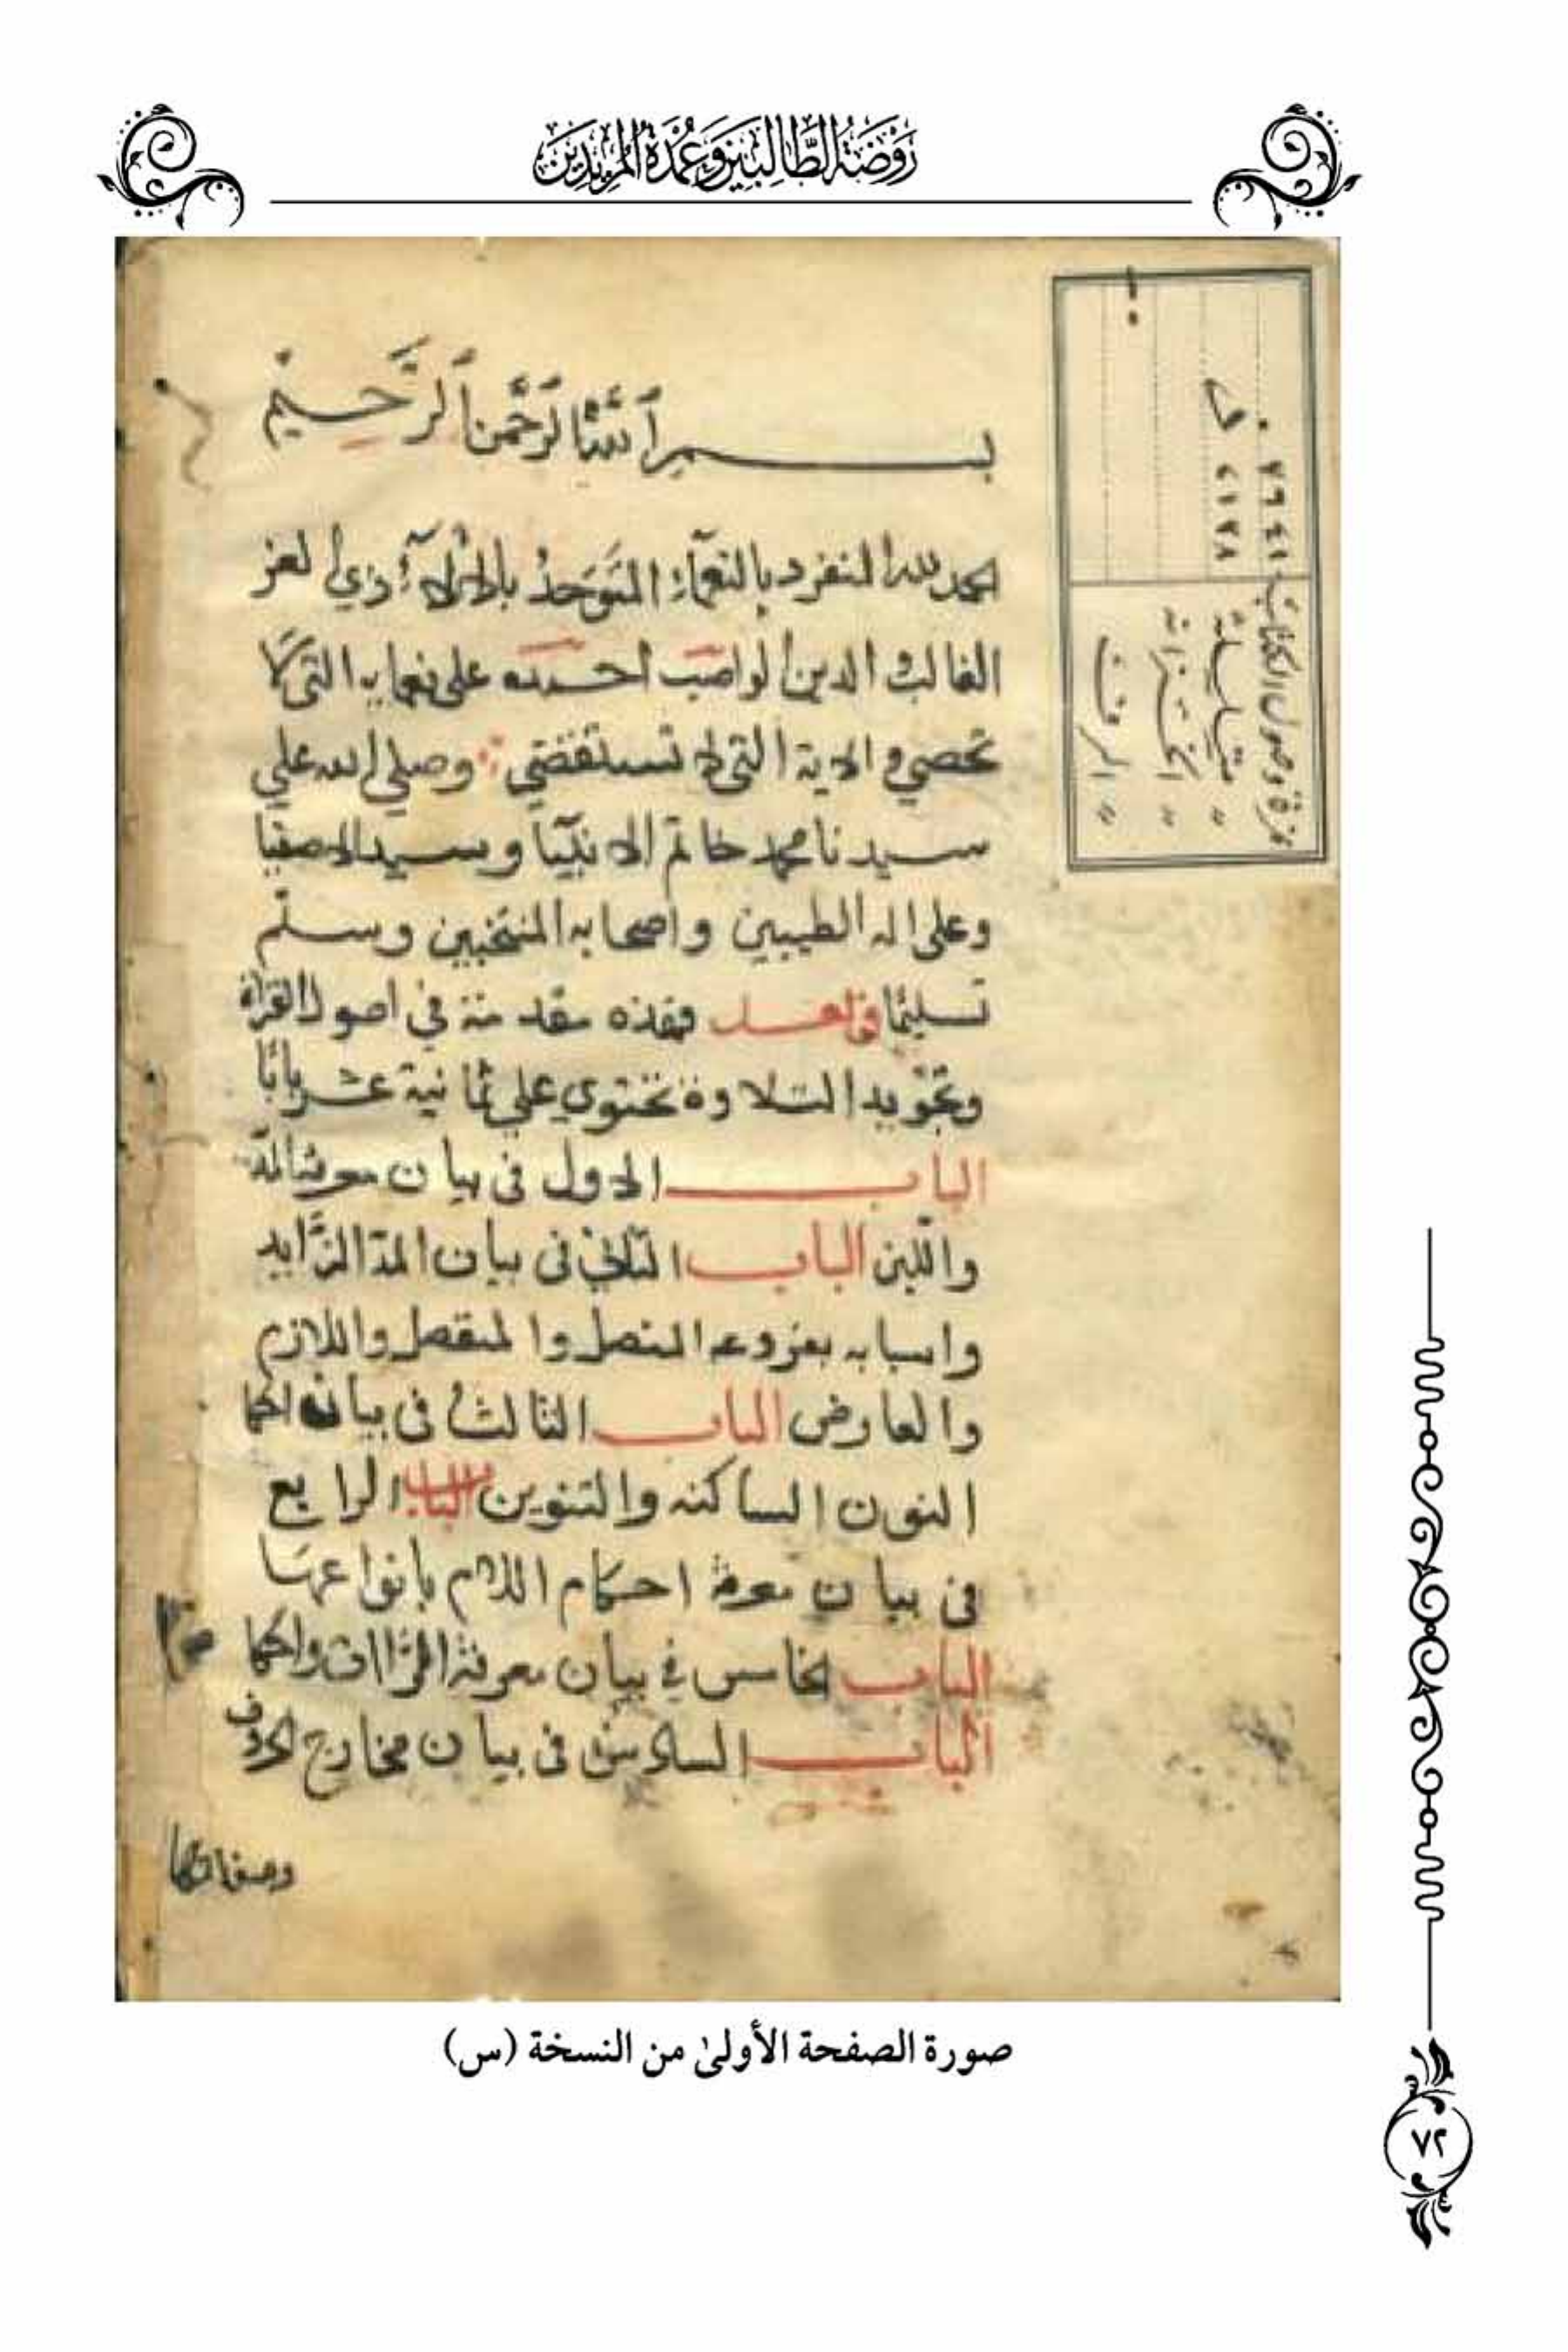 رَوْضَةُ الطَّالِبِينَ وَعُمْدَةُ المُرِيدِينَ
بسم آلله آلرَّحْمن آلرَّحيم
الحمد لله المنفرد بالنعمآء المتَوَحِّدُ بالالآء ذي العز
الغالب والدين الواصب احمده على نعمايه التي لا
تحصي والاية التي لا تستقضي وصلي الله علي
سيدنا محمد خاتم الانبيآ وسيد الاصفيا
وعلى اله الطيبين واصحابه المنتخبين وسلم
تسليمًا وبعد فهذه مقدمة في اصول القراة
وتجويد التلاوة تحتوي علي ثمانية عشر بابًا
الباب الاول فى بيان معرفة المدّ
واللين الباب الثاني فى بيان المدّ الزَّايد
واسبابه بفروعه المتصل والمنفصل واللازم
والعارض الباب الثالث فى بيان احكا
النون الساكنه والتنوين الباب الرابع
فى بيان معرفة احكام اللام بانواعها
الباب الخامس في بيان معرفة الرَّاات واحكا
الباب السادس فى بيان مخارج الحروف
وصفاتها
نمرة وصول الكتاب ٧٦٤١
" متسلسلة ٤١٢٨
" الخزانة
" الرف
صورة الصفحة الأولىٰ من النسخة (س)
٧٢